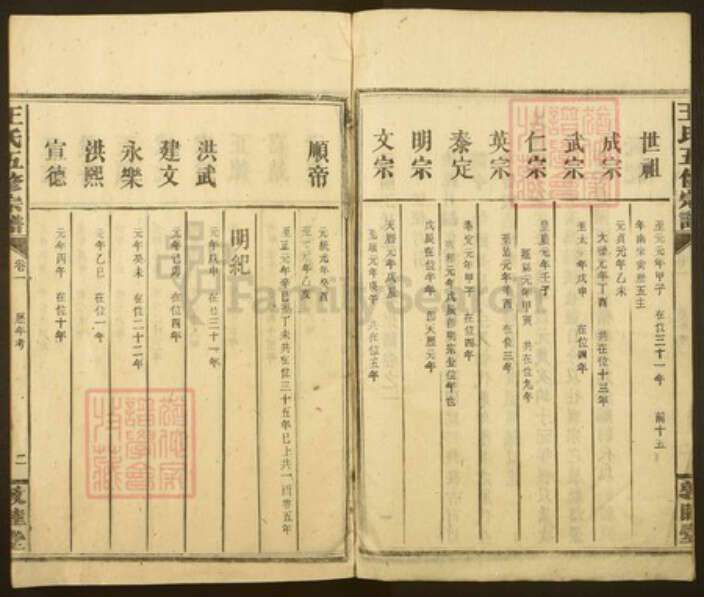 王氏五修宗譜
敦睦堂
世祖
至元元年甲子 在位三十一年 前十五
年南宋寅歷五主
成宗
元貞元年乙未
大德元年丁酉 共在位十三年
武宗
至大元年戊申 在位四年
仁宗
皇慶元年壬子
延祐元年甲寅 共在位九年
英宗
至治元年辛酉 在位三年
泰定
泰定元年甲子 在位四年
明宗
戊辰在位半年 即天歷元年
文宗
天歷元年戊辰
至順元年庚午 共在位五年
順帝
元統元年癸酉
至元元年乙亥
至正元年辛巳至丁未共在位三十五年已上共一百零五年
明紀
洪武
元年戊申 在位三十一年
建文
元年己卯 在位四年
永樂
元年癸未 在位二十二年
洪熙
元年乙巳 在位一年
宣德
元年丙午 在位十年
王氏五修宗譜
卷一 歷年考
二
敦睦堂
FamilySearch